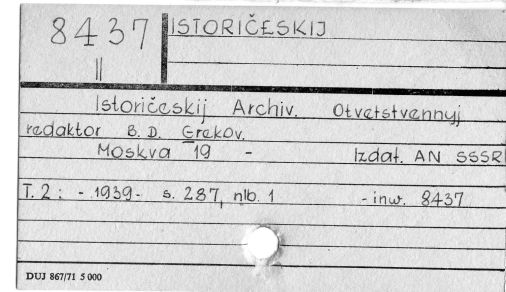 8437
II
ISTORIČESKIJ
Istoričeskij Archiv. Otvetstvennyj
redaktor B. D. Grekov.
Moskva 19 - Izdat. AN SSSR
T. 2: - 1939 - s. 287, nlb. 1 - inw. 8437
DUJ 867/71 5 000